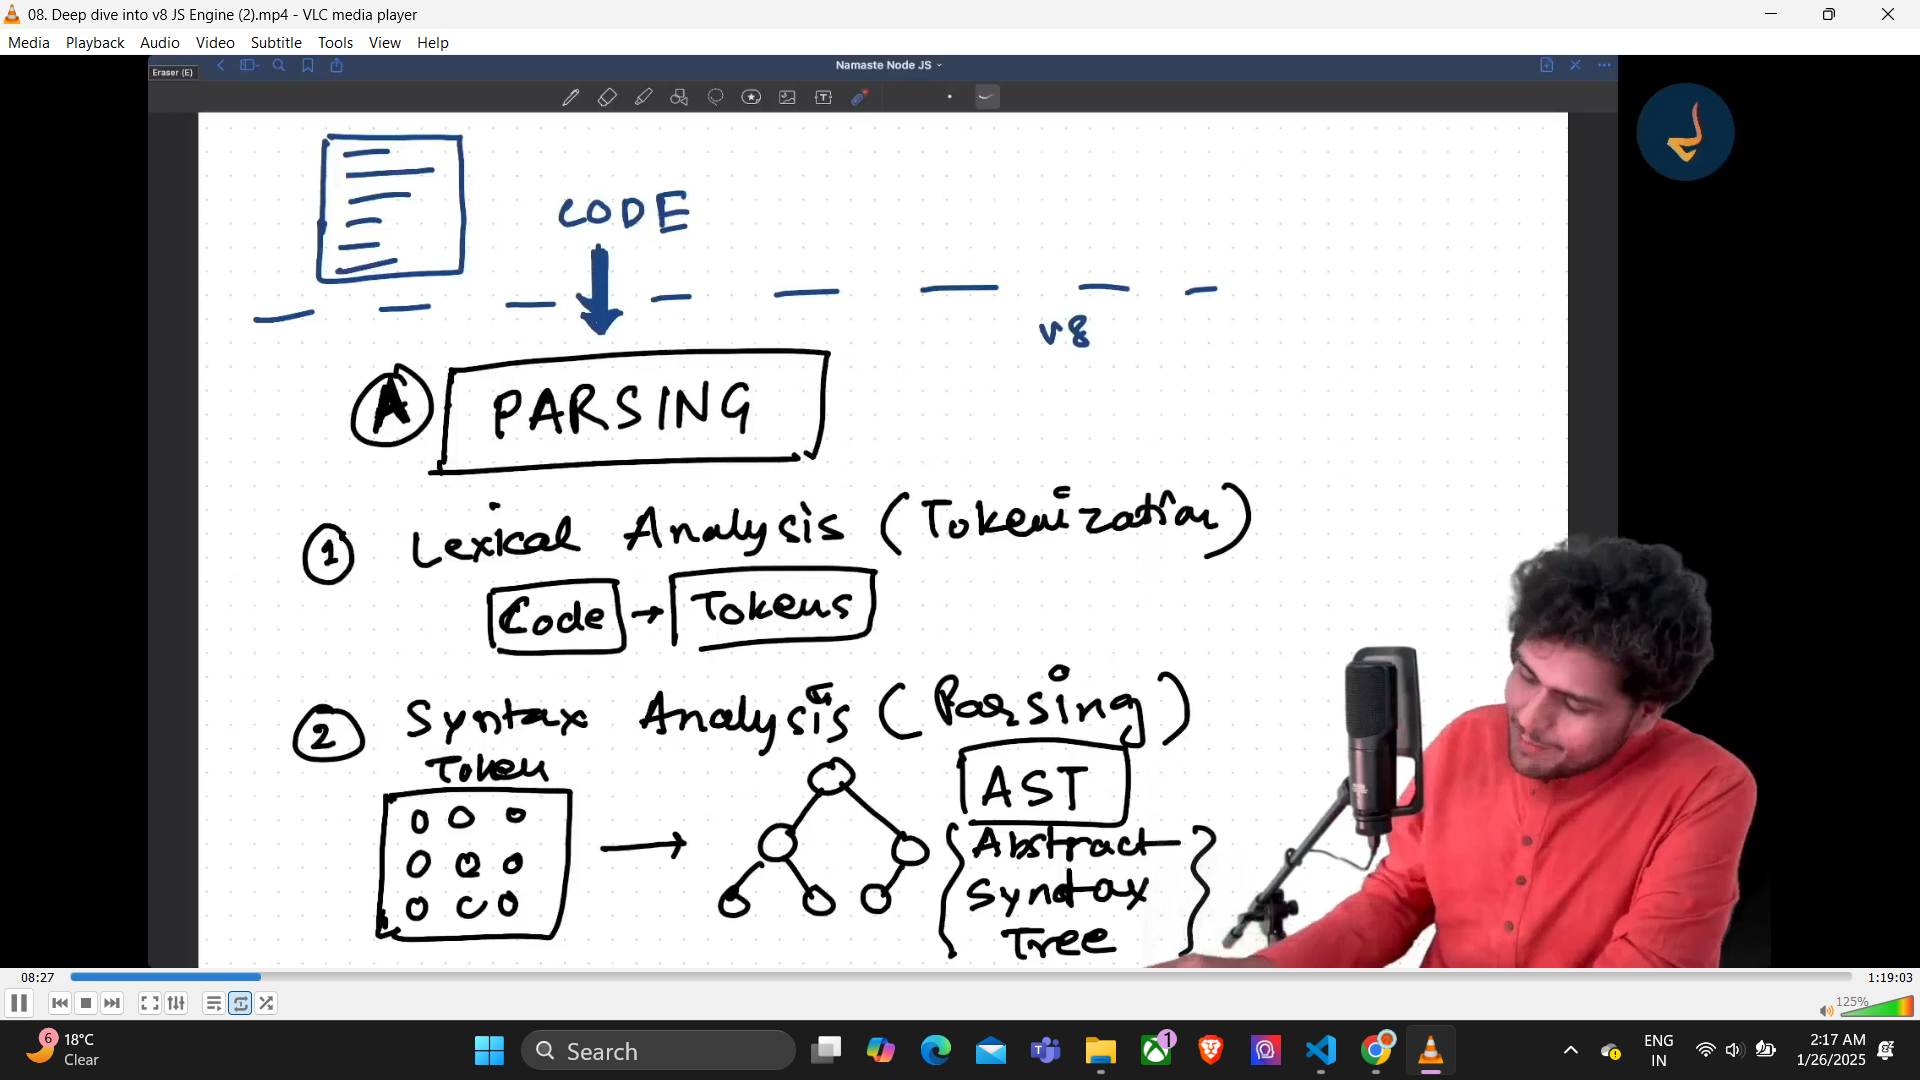 08. Deep dive into v8 JS Engine (2).mp4 - VLC media player
Media Playback Audio Video Subtitle Tools View Help
Eraser (E)
Namaste Node JS
CODE
v8
A PARSING
1 Lexical Analysis (Tokenization)
Code → Tokens
2 Syntax Analysis (Parsing)
Token
AST
Abstract
Syntax
Tree
08:27
1:19:03
125%
6
18°C
Clear
Search
1
ENG
IN
2:17 AM
1/26/2025